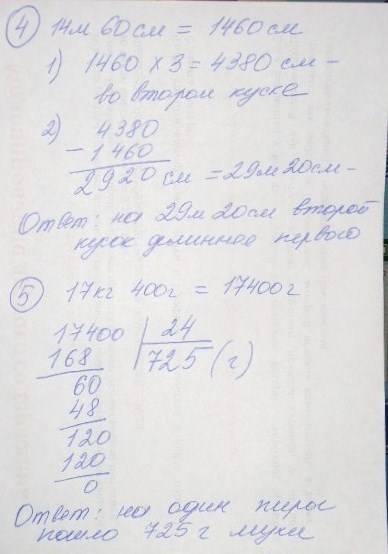 4 14м 60см = 1460 см
1) 1460 х 3 = 4380 см -
во втором куске
2) 4380
- 1460
2920 см = 29м 20см -
Ответ: на 29м 20см второй
кусок длиннее первого
5 17кг 400г = 17400г
17400 24
168 725 (г)
60
48
120
120
0
Ответ: на один пирог
пошло 725 г муки